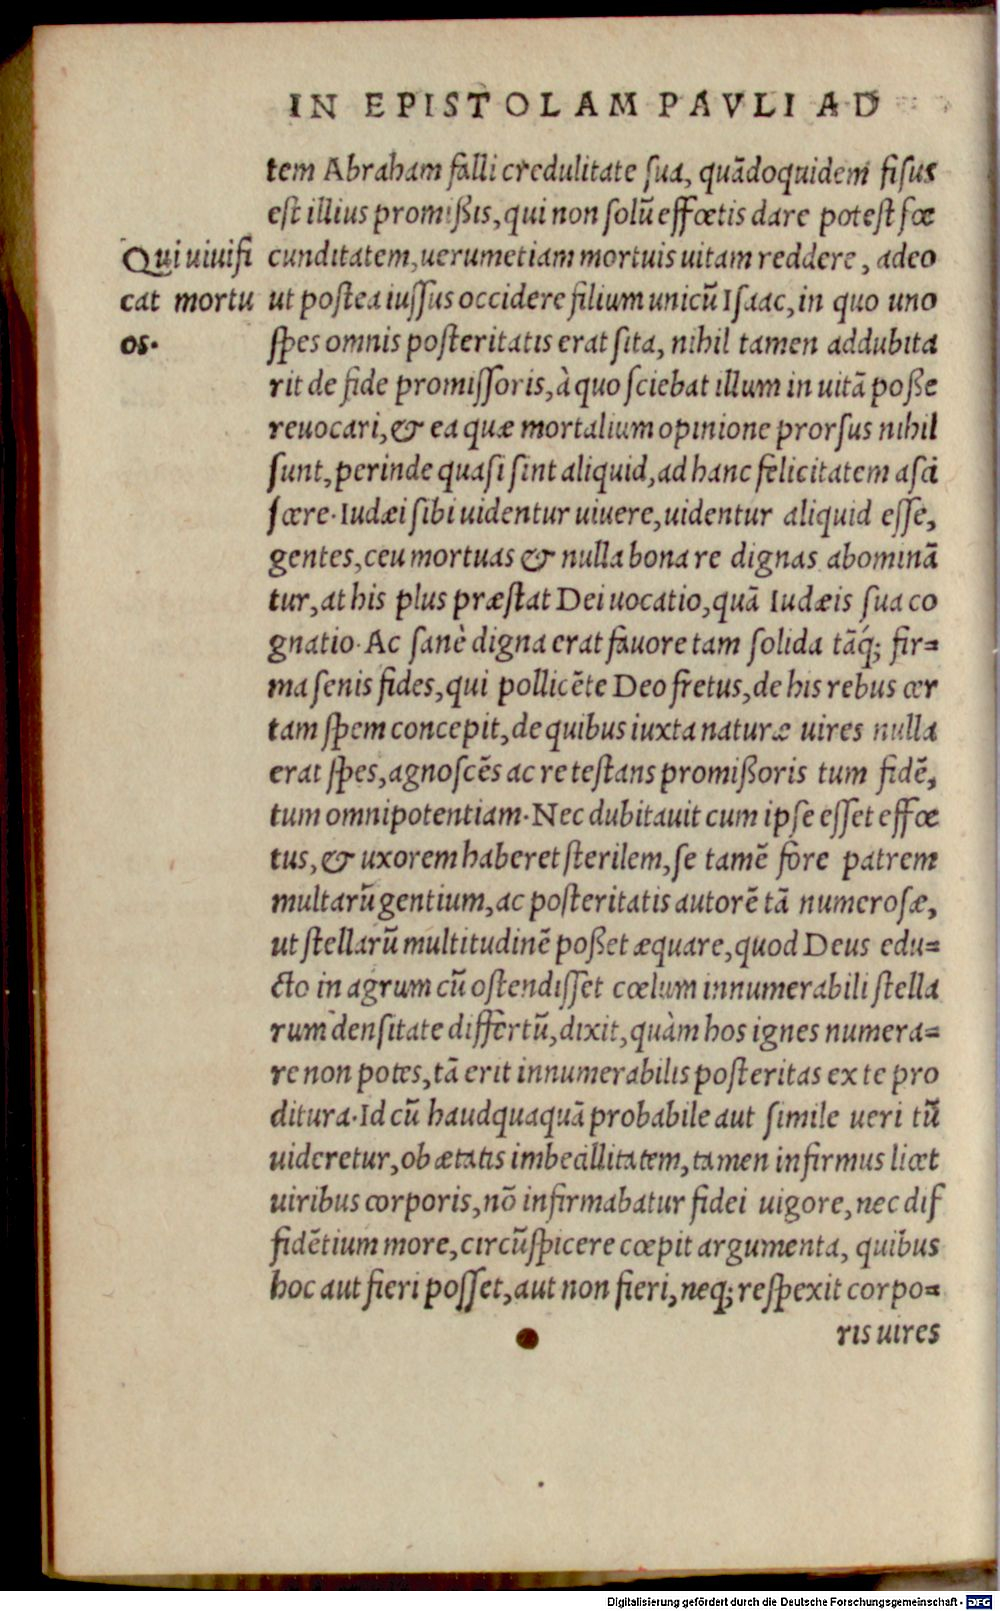 IN EPISTOLAM PAVLI AD
tem Abraham falli credulitate sua, quãdoquidem fisus
est illius promißis, qui non solũ effœtis dare potest fœ
Qui uiuifi
cat mortu
os.
cunditatem, uerumetiam mortuis uitam reddere, adeo
ut postea iussus occidere filium unicũ Isaac, in quo uno
spes omnis posteritatis erat sita, nihil tamen addubita
rit de fide promissoris, à quo sciebat illum in uitã poße
reuocari, & ea quæ mortalium opinione prorsus nihil
sunt, perinde quasi sint aliquid, ad hanc felicitatem asci
scere. Iudæi sibi uidentur uiuere, uidentur aliquid esse,
gentes, ceu mortuas & nulla bona re dignas abominã
tur, at his plus præstat Dei uocatio, quã Iudæis sua co
gnatio. Ac sanè digna erat fauore tam solida tãq́; fir=
ma senis fides, qui pollicẽte Deo fretus, de his rebus cer
tam spem concepit, de quibus iuxta naturæ uires nulla
erat spes, agnoscẽs ac re testans promißoris tum fidẽ,
tum omnipotentiam. Nec dubitauit cum ipse esset effœ
tus, & uxorem haberet sterilem, se tamẽ fore patrem
multarũ gentium, ac posteritatis autorẽ tã numerosæ,
ut stellarũ multitudinẽ poßet æquare, quod Deus edu=
cto in agrum cũ ostendisset cœlum innumerabili stella
rum densitate differtũ, dixit, quàm hos ignes numera=
re non potes, tã erit innumerabilis posteritas ex te pro
ditura. Id cũ haudquaquã probabile aut simile ueri tũ
uideretur, ob ætatis imbecillitatem, tamen infirmus licet
uiribus corporis, nõ infirmabatur fidei uigore, nec dif
fidẽtium more, circũspicere cœpit argumenta, quibus
hoc aut fieri posset, aut non fieri, neq; respexit corpo=
ris uires
Digitalisierung gefördert durch die Deutsche Forschungsgemeinschaft - DFG